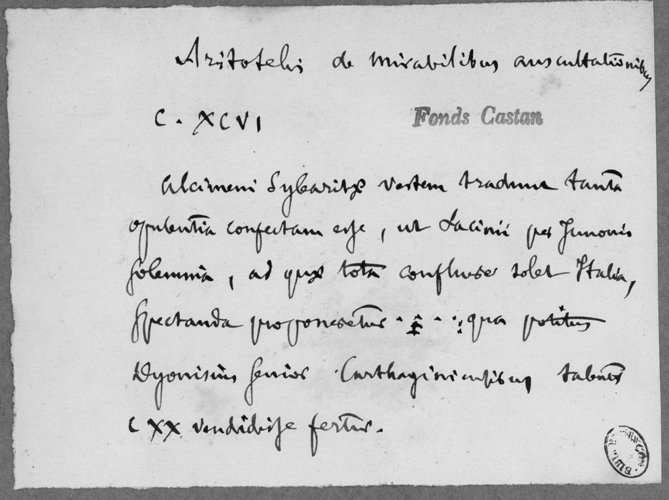 Aristotelis de mirabilibus auscultationibus
C. XCVI
Fonds Castan
Alcimeni Sybaritæ vestem tradunt tanta
opulentia confectam esse, ut Lacinii per Junonis
solemnia, ad quæ tota confluere solet Italia,
spectanda proponeretur . . . . qua potitus
Dyonisius senior Carthaginiensibus talentis
CXX vendidisse fertur.